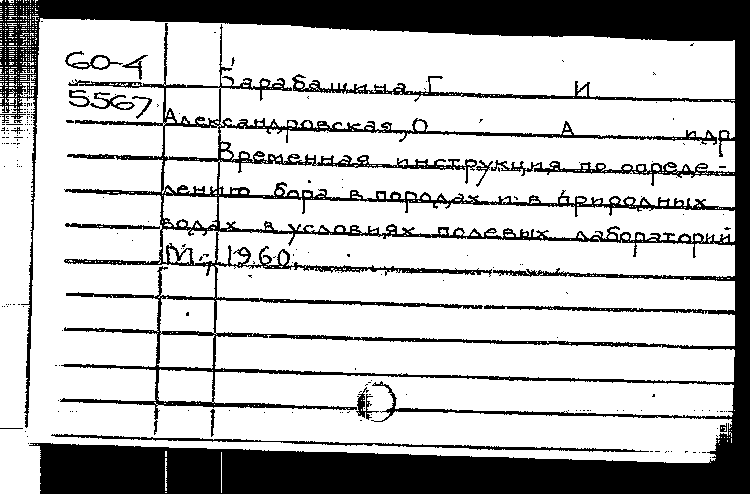 60-4
5567
Барабашина, Г И
Александровская, О А и др
Временная инструкция по опреде-
лению бора в породах и в природных
водах в условиях полевых лабораторий
М., 1960.